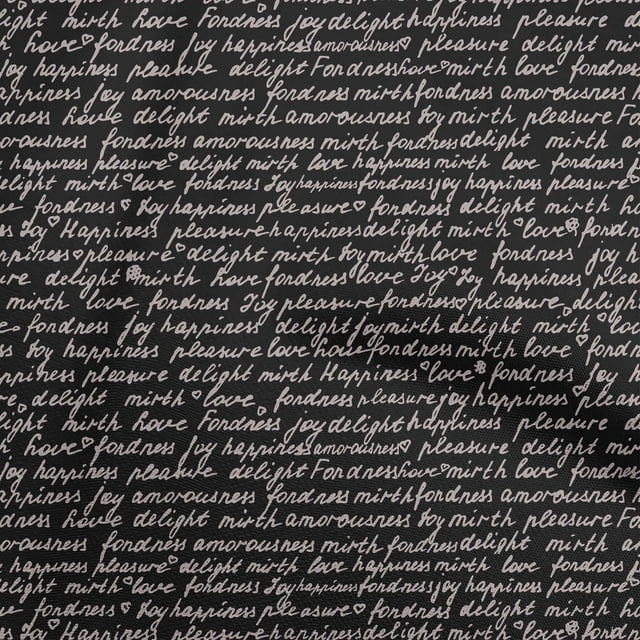 light mirth love Fondness joy delight happiness pleasure
love fondness Joy happiness amorousness pleasure delight
joy happiness pleasure delight Fondness love mirth love fondness
happiness joy amorousness fondness mirth fondness amorousness
fondness love delight mirth amorousness Joy mirth pleasure
amorousness fondness amorousness mirth fondness delight mirth
happiness pleasure delight mirth love happiness mirth love fondness
delight mirth love fondness Joy happiness fondness joy happiness pleasure
love fondness Joy happiness pleasure fondness delight mirth
Joy Happiness pleasure happiness delight mirth love
happiness pleasure delight mirth Joy mirth love fondness joy
delight mirth love fondness love Joy Joy happiness
mirth love fondness Joy pleasure fondness pleasure delight
fondness joy happiness delight joy mirth delight mirth
Joy happiness pleasure love love fondness mirth love
happiness pleasure delight mirth Happiness love fondness Joy
delight mirth love fondness pleasure joy happiness
light mirth love Fondness joy delight happiness pleasure
love fondness Joy happiness amorousness pleasure delight
joy happiness pleasure delight Fondness love mirth love fondness
happiness joy amorousness fondness mirth fondness amorousness
fondness love delight mirth amorousness Joy mirth pleasure
amorousness fondness amorousness mirth fondness delight mirth
happiness pleasure delight mirth love happiness mirth love fondness
delight mirth love fondness Joy happiness fondness joy happiness pleasure
fondness Joy happiness pleasure fondness delight mirth
Joy Happiness pleasure happiness delight mirth love